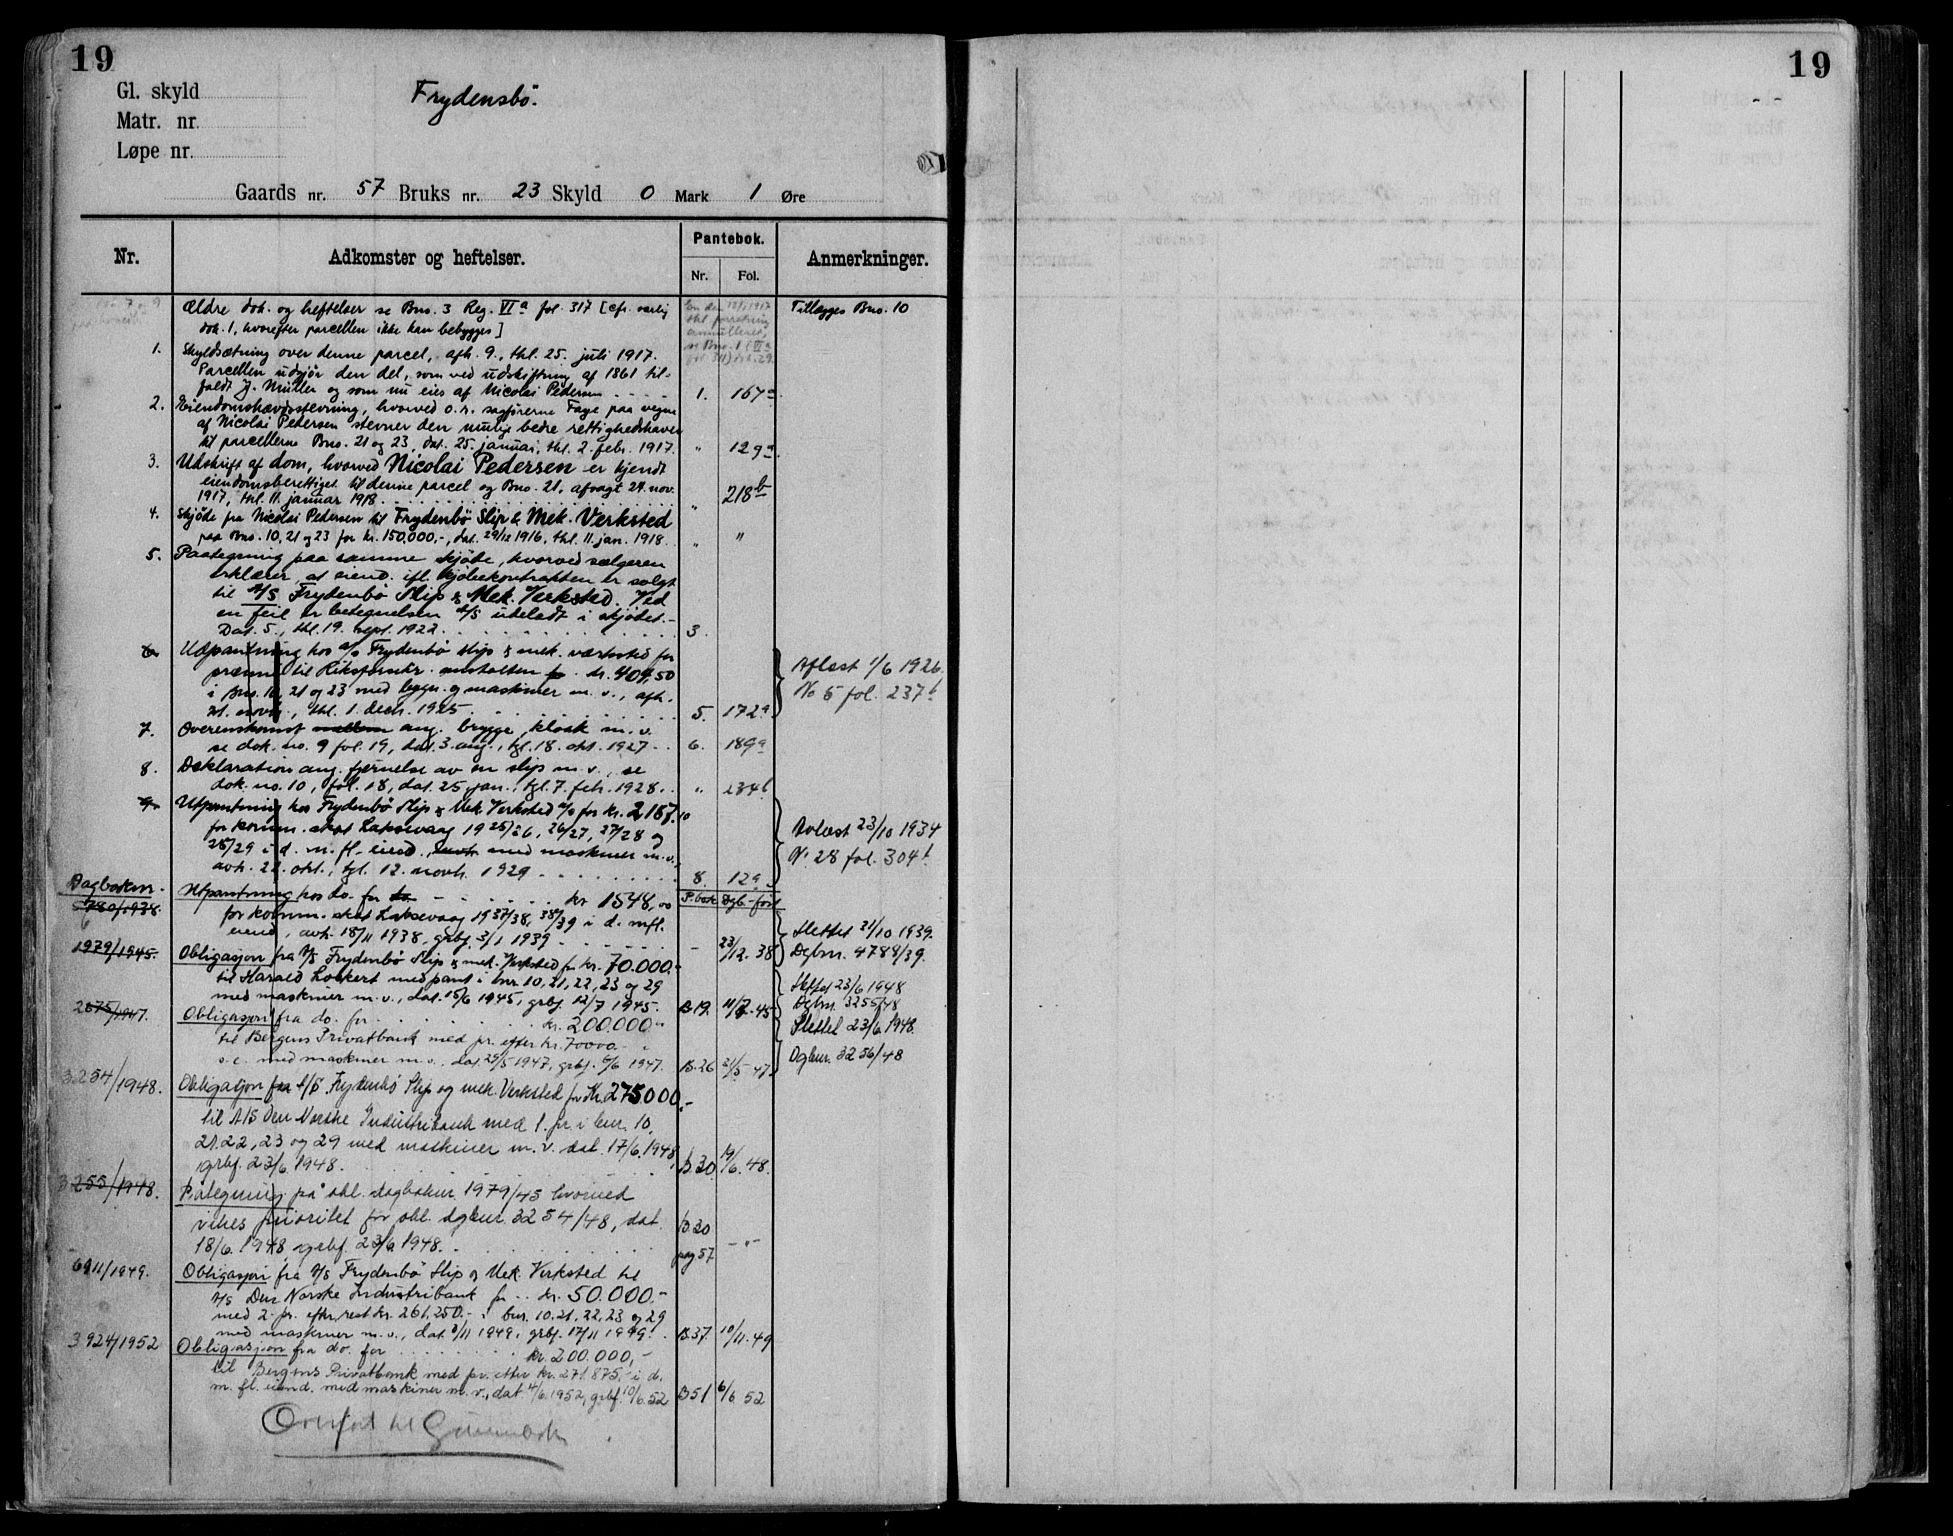 19
Gl. skyld
Matr. nr.
Løpe nr.
Frydensbö.
Gaards nr. 57 Bruks nr. 23 Skyld 0 Mark 1 Øre
Nr. Adkomster og heftelser. Pantebok. Anmerkninger.
Nr. Fol.
Ældre dok. og heftelser se Bno. 3 Reg. VI a fol. 317 [cfr. særlig Tillægges Bno. 10
dok. 1, hvorefter parcellen ikke kan bebygges]
1. Skyldsætning over denne parcel, afh. 9., thl. 25. juli 1917.
Parcellen udgjør den del, som ved udskiftning af 1861 til-
faldt J. Müller og som nu eies af Nicolai Pedersen 1. 167a
2. Eiendomshævdsstevning, hvorved o.r. sagførerne Faye paa vegne
af Nicolai Pedersen stevner den mulig bedre rettighedshaver
til parcellerne Bno. 21 og 23, dat. 25. januar, thl. 2. febr. 1917. " 129a
3. Udskrift af dom, hvorved Nicolai Pedersen er kjendt
eiendomsberettiget til denne parcel og Bno. 21, afsagt 24. nov.
1917, thl. 11. januar 1918. " 218b
4. Skjöde fra Nicolai Pedersen til Frydenbö Slip & Mek. Verksted
paa Bno. 10, 21 og 23 for kr. 150.000,-, dat. 29/12 1916, thl. 11. jan. 1918. " "
5. Paategning paa samme skjöde, hvorved sælgeren
erklærer, at eiend. ifl. kjøbekontrakten er solgt
til A/S Frydenbö Slip & Mek. Verksted. Ved
en feil er betegnelsen A/S uteladt i skjödet.-
Dat. 5., thl. 19. sept. 1922. 3.
6. Udpantning hos A/S Frydenbö slip & mek. værksted for
præmie til Riksforsikr. anstalten kr. 404,50 Aflæst 1/6 1926.
i Bno. 10, 21 og 23 med bygn. og maskiner m. v., afh. No 5 fol. 237b
novbr., thl. 1. decbr. 1925. 5. 172a
7. Overenskomst mellem ang. brygge, kloak m. v.
se dok. no. 9 fol. 19, dat. 3. aug., tgl. 18. okt. 1927. 6. 189a
8. Deklaration ang. fjernelse av en slip m. v., se
dok. no. 10, fol. 18, dat. 25 jan., tgl. 7. feb. 1928. " 234b
9. Utpantning hos Frydenbö Slip & Mek Verksted A/S for kr. 2157,10
for komm. skat Laksevaag 1925/26, 26/27, 27/28 og Avlæst 23/10 1934
28/29 i d. m. fl. eiend. med maskiner m. v. No 28 fol. 304b
avh. 22. okt., tgl. 12. novbr. 1929 8. 12a
Dagboknr. Utpantning hos do. for kr 1548,00 P.bok Dgb-ført
5780/1938. for komm. skat Laksevaag 1937/38, 38/39 i d. mfl.
eiend., avh. 18/11 1938, grbf. 3/1 1939 - 23/12.38 Slettet 31/10 1939.
1979/1945. Obligasjon fra A/S Frydenbö Slip & mek. Verksted for kr. 70.000.- Dgbnr. 4788/39.
til Harald Lockert med pant i bnr. 10, 21, 22, 23 og 29 Slettet 23/6 1948
med maskiner m. v., dat. 15/6 1945, grbf. 12/7 1945. B19. 11/7-45 Dgbnr. 3255/48
2675/1947. Obligasjon fra do. for kr. 200.000.- Slettet 23/6 1948.
til Bergens Privatbank med pr. efter kr. 70000.-
s.c. med maskiner m. v., dat. 29/5 1947, grbf. 6/6 1947. B.26 31/5-47 Dgbnr. 3256/48
3254/1948. Obligasjon fra A/S Frydenbö Slip og mek. Verksted for Kr. 275000.-
til A/S Den Norske Industribank med 1. pr. i bnr. 10,
21, 22, 23 og 29 med maskiner m. v. dat. 17/6.1948,
grbf. 23/6 1948. B.30. 19/6.48.
3255/1948. Påtegning på obl. dagboknr. 1979/45 hvorved
vikes prioritet for obl. dgbnr. 3254/48, dat. B.30
18/6. 1948, grbf. 23/6 1948. pag 57. - " -
6911/1949. Obligasjon fra A/S Frydenbö Slip & Mek. Verksted til
A/S Den Norske Industribank for kr. 50.000.-
med 2. pr. efter rest kr. 261.250.- i bnr. 10, 21, 22, 23 og 29
med maskiner m. v., dat. 3/11 1949, grbf. 17/11 1949. B37. 10/11.49
3924/1952 Obligasjon fra do. for kr. 200.000,-
til Bergens Privatbank med pr. etter kr. 271.875,- i d.
m. fl. eiend. med maskiner m. v., dat. 4/6 1952, grbf. 10/6.52 B51 6/6 52
Overført til Grunnbok
19